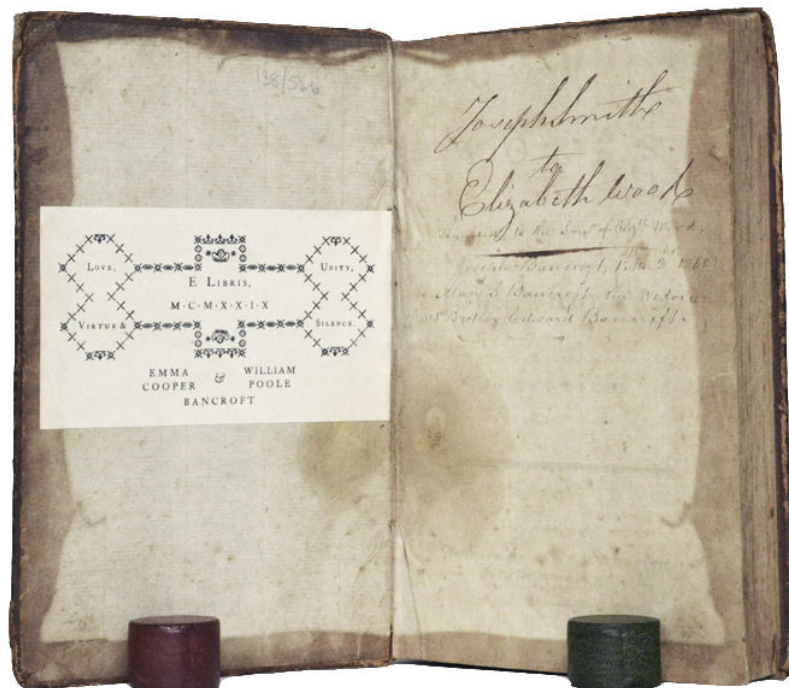 138/526
LOVE,
UNITY,
E LIBRIS,
M·C·M·X·X·I·X
VIRTUE &
SILENCE.
EMMA & WILLIAM
COOPER POOLE
BANCROFT
Joseph Smith
to
Elizabeth Wood
to the Son of Elizth Wood,
Joseph Bancroft, 1868
Mary S Bancroft, the
Edward Bancroft